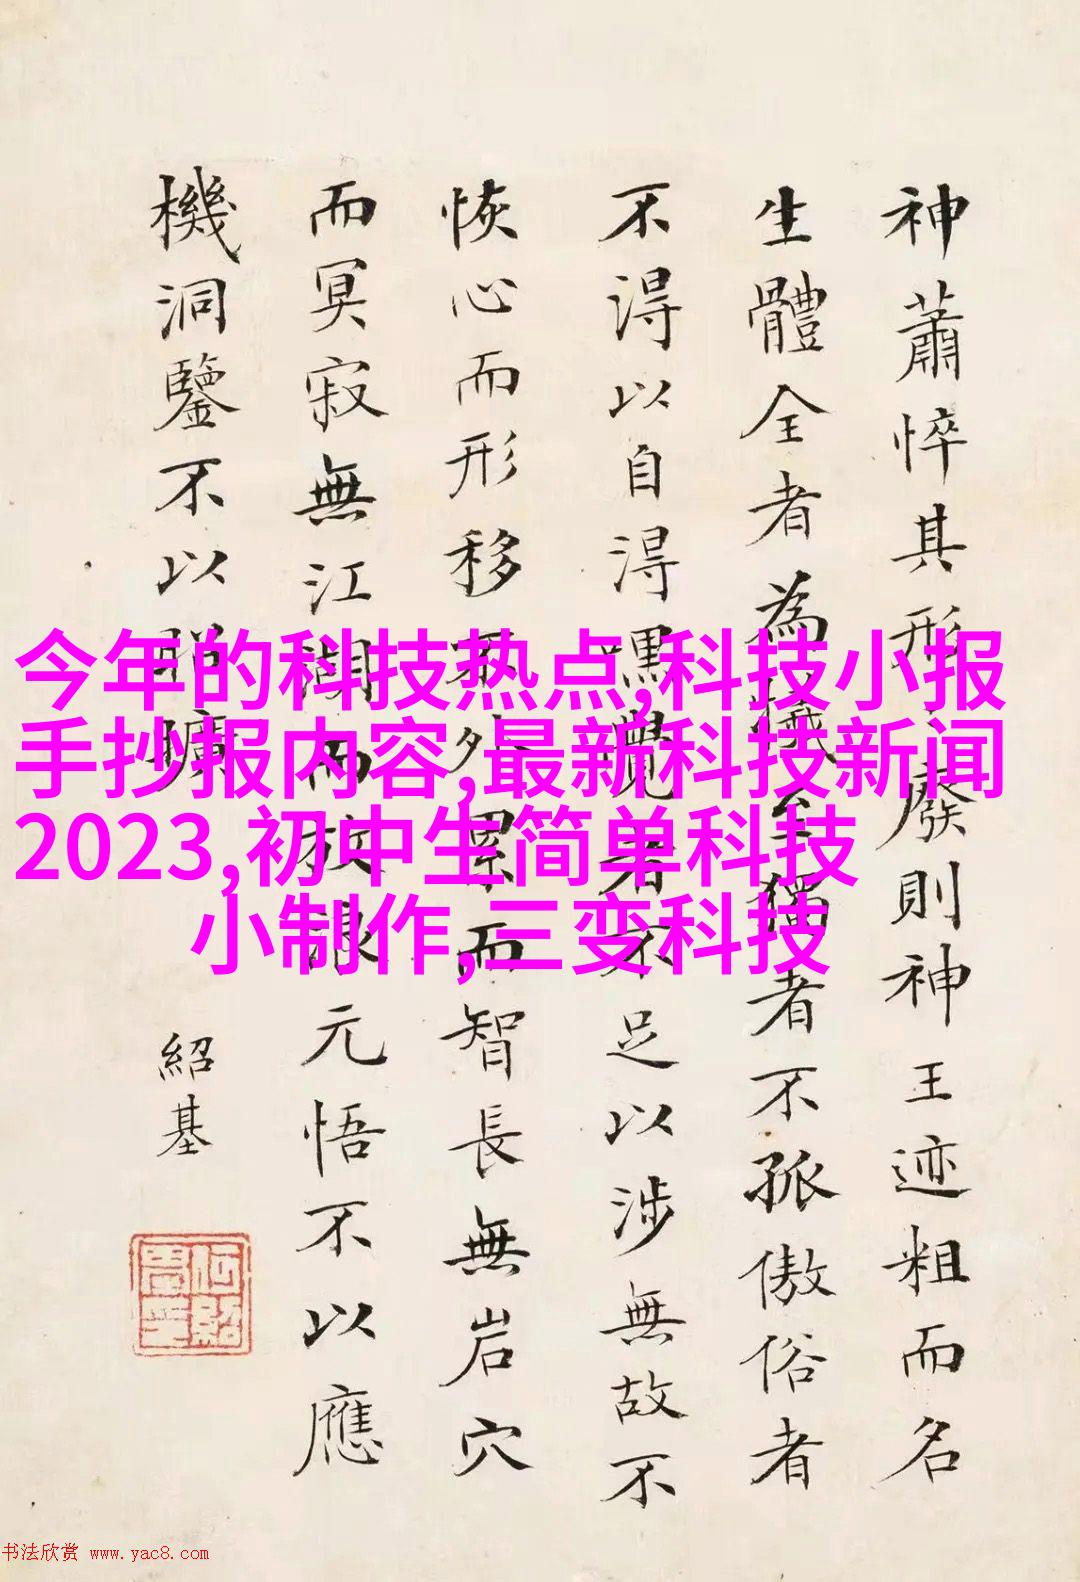 神蕭悴其形廢則神王迹粗而名
生體全者為犧至獨者不孤傲俗者
不得以自得默覺者不足以涉無故不
恢心而形移不外累而智長無岩穴
而冥寂無江湖而放浪元悟不以應
機洞鑒不以昭曠
紹基
今年的科技热点,科技小报
手抄报内容,最新科技新闻
2023,初中生简单科技
小制作,三变科技
书法欣赏 www.yac8.com